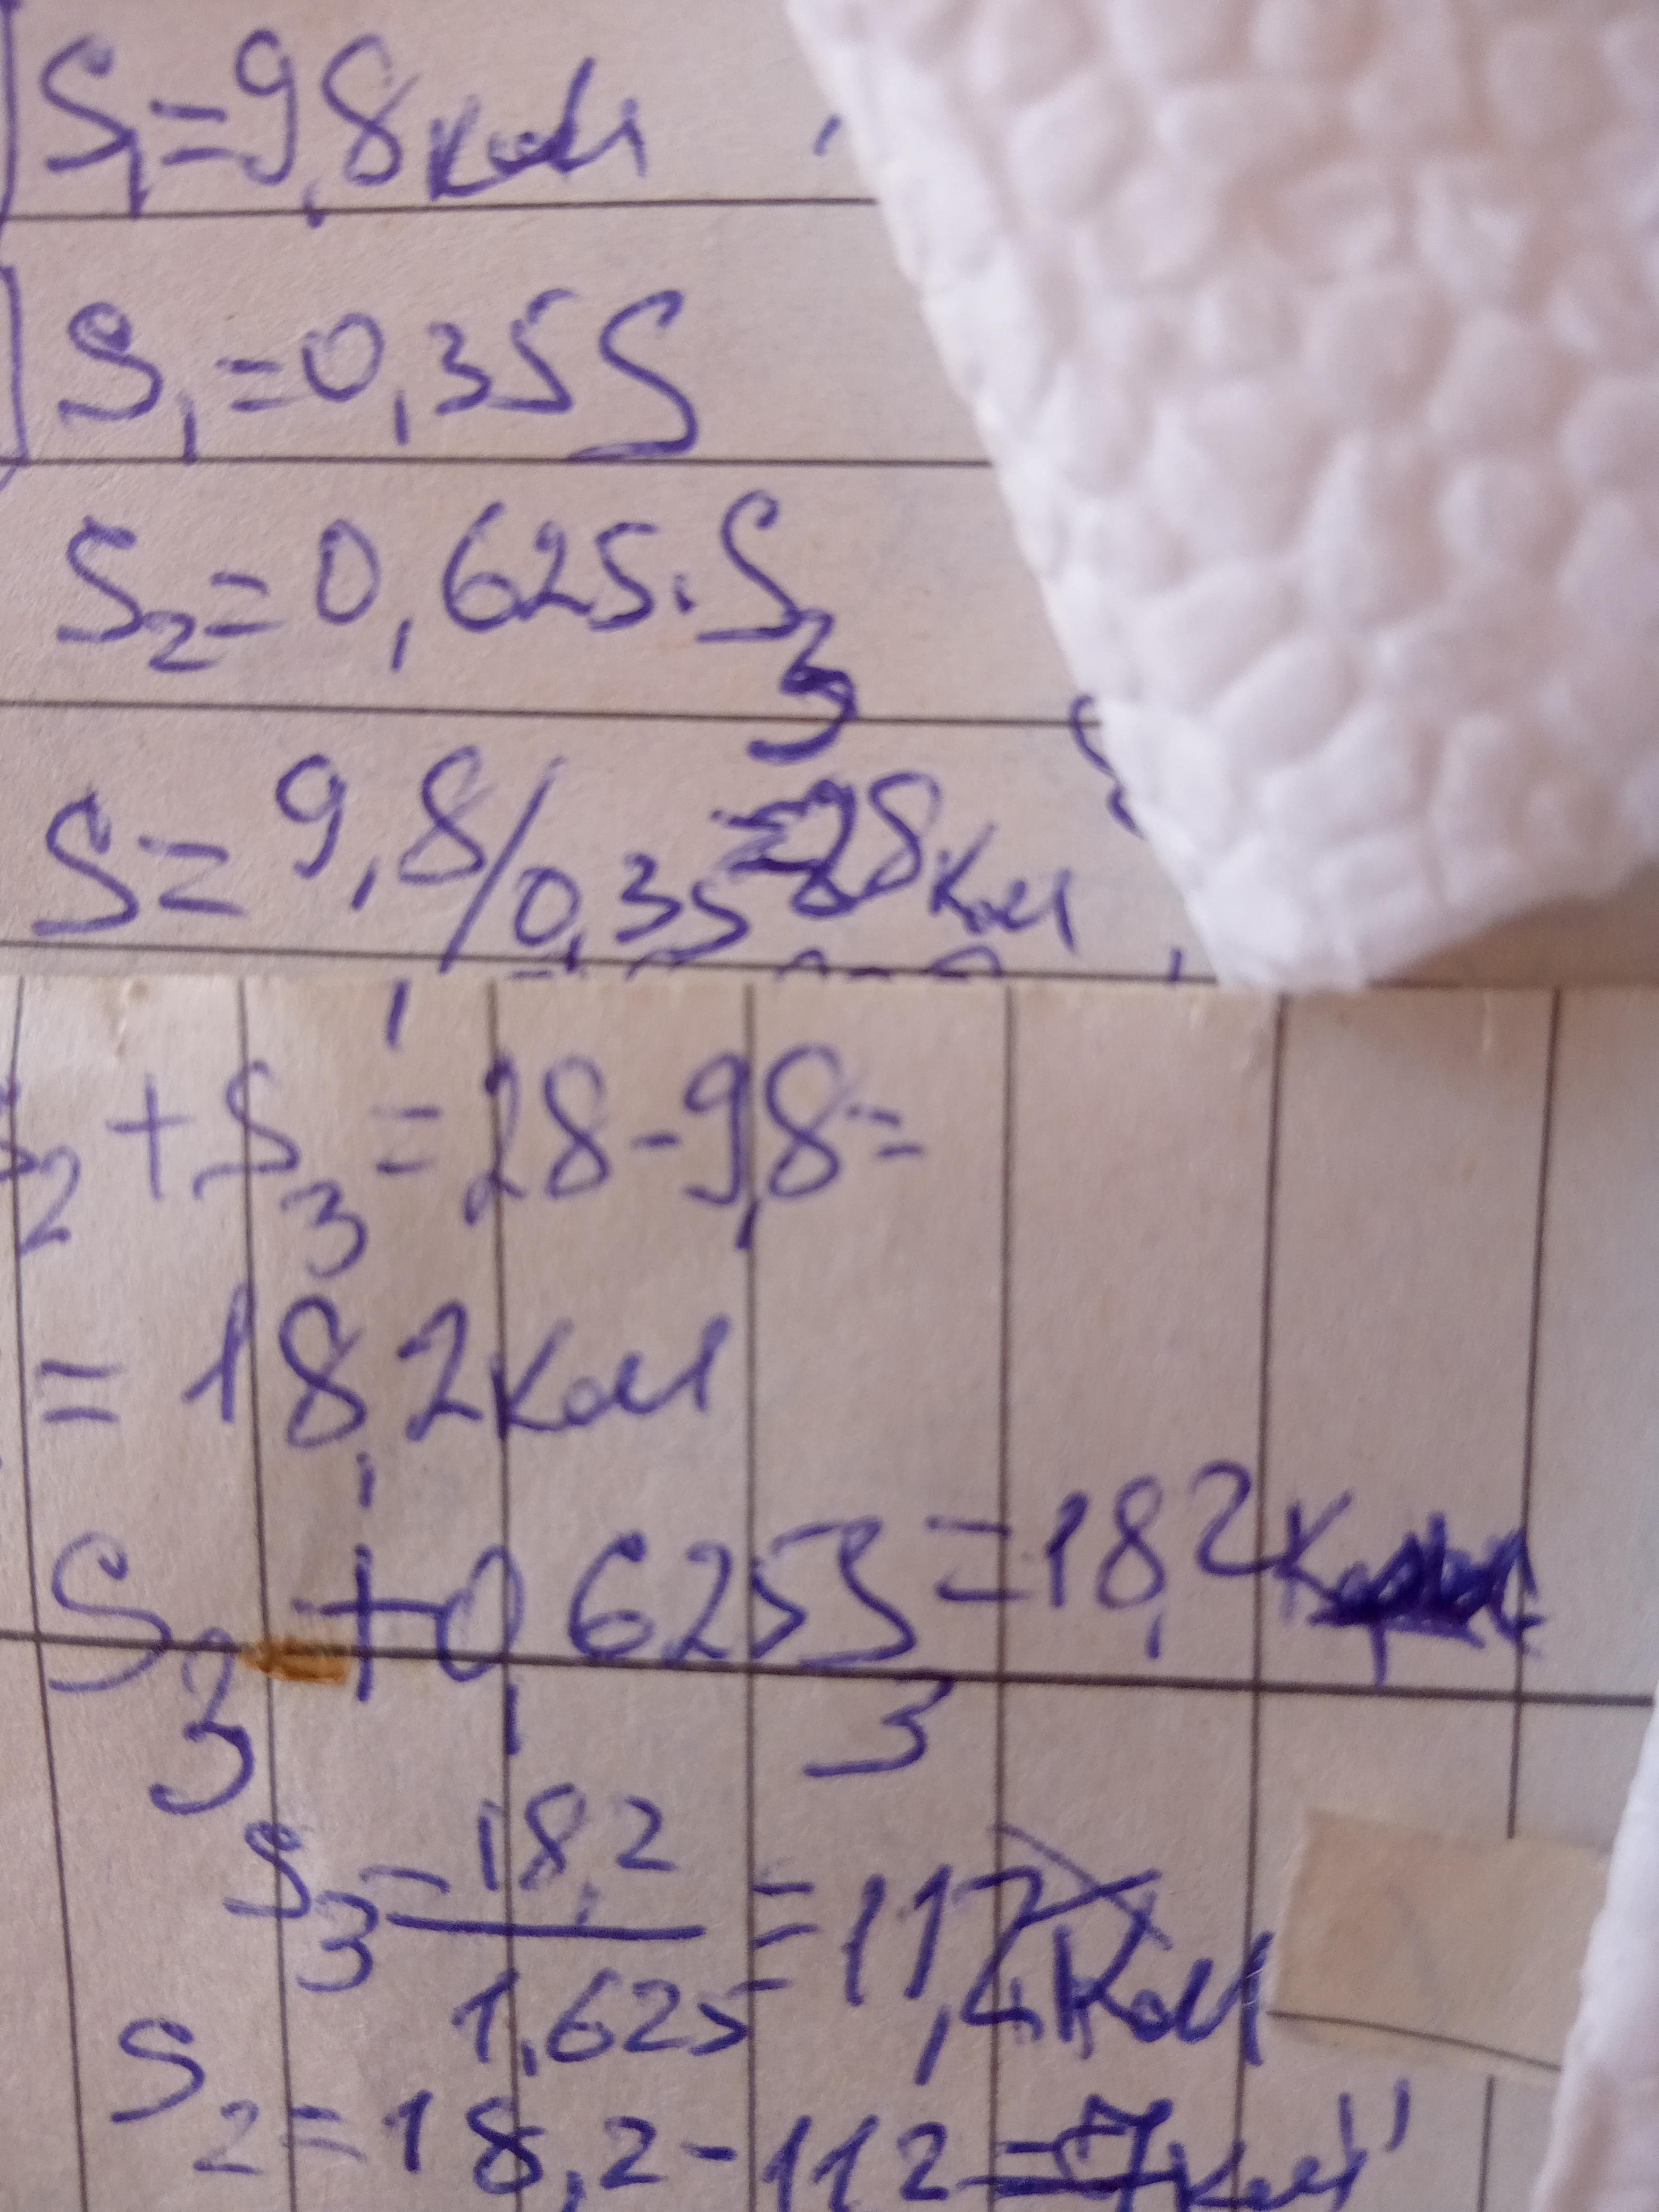 S₁=9,8км
S₁=0,35S
S₂=0,625·S₃
S=9,8/0,35=28км
S₂+S₃=28-9,8=
=18,2км
S₃+0,625S₃=18,2км
S₃=18,2/1,625=11,2км
S₂=18,2-11,2=7км